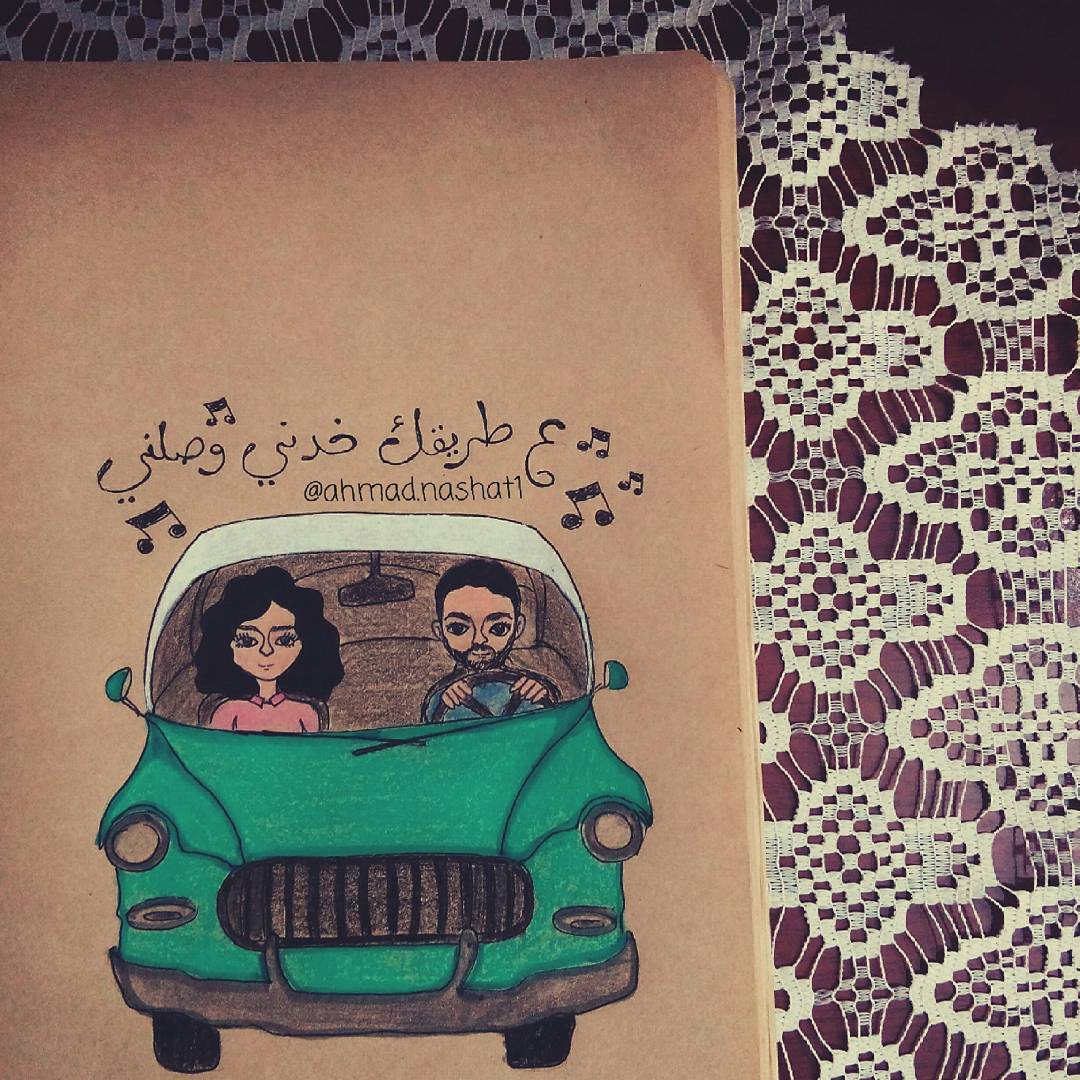 ع طريقك خدني وصلني
@ahmad.nashat1